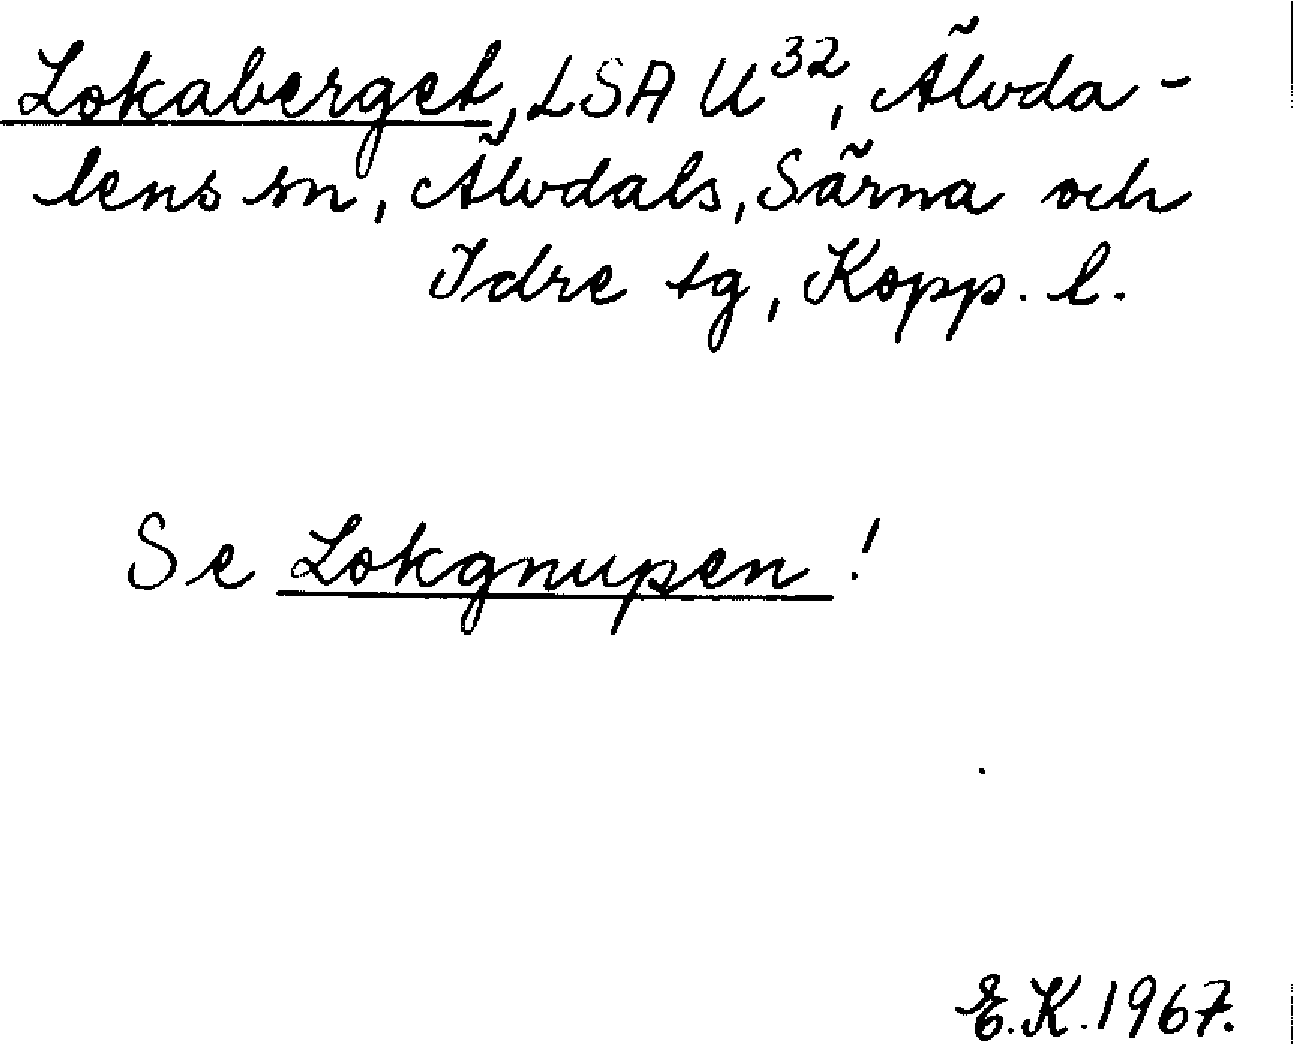 Lokaberget, LSA U³², Älvda-
lens sn, Älvdals, Särna och
Idre tg, Kopp. l.
Se Lokgnupen!
E.K. 1967.